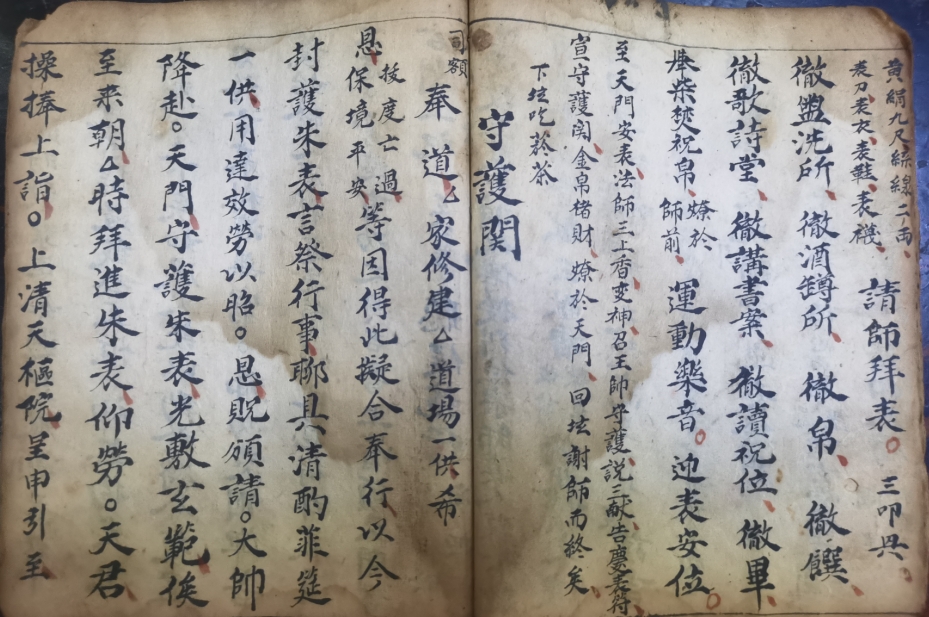 黄絹九尺、絲線二兩、
表刀、表衣、表鞋、表襪、
請師拜表。三叩興、
徹盥洗所、徹酒罇所、徹帛、徹饌、
徹歌詩堂、徹講書案、徹讀祝位、徹畢、
舉柴焚祝帛、燎於師前、運動樂音。迎表安位。
至天門安表、法師三上香変神召王帥守護、説三献告慶表符
宣守護関、金帛楮財、燎於天門、回坛謝師而終矣、
下坛吃菸茶
守護関
司額
奉 道厶家修建厶道場一供希
恩
拔度亡過
保境平安
等因得此擬合奉行以今
封護朱表言祭行事聊具清酌菲筵
一供用達效勞以昭。恩貺頒請。大帥
降赴。天門守護朱表、光敷玄範俟
至来朝厶時拜進朱表、仰勞。天君
操捧上詣。上清天樞院呈申引至